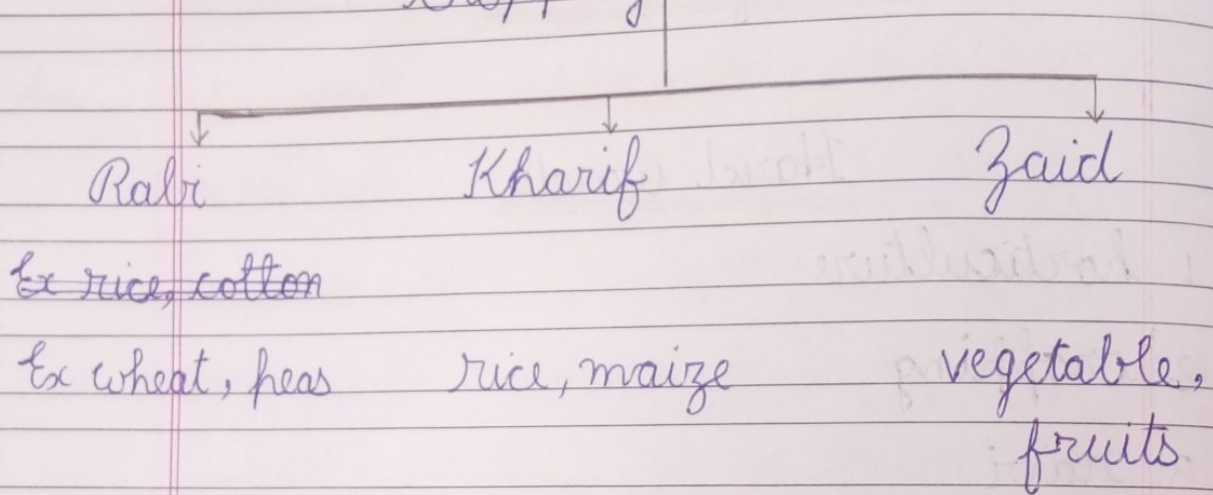 Rabi Kharif Zaid
Ex rice, cotton
Ex wheat, peas rice, maize vegetable,
fruits